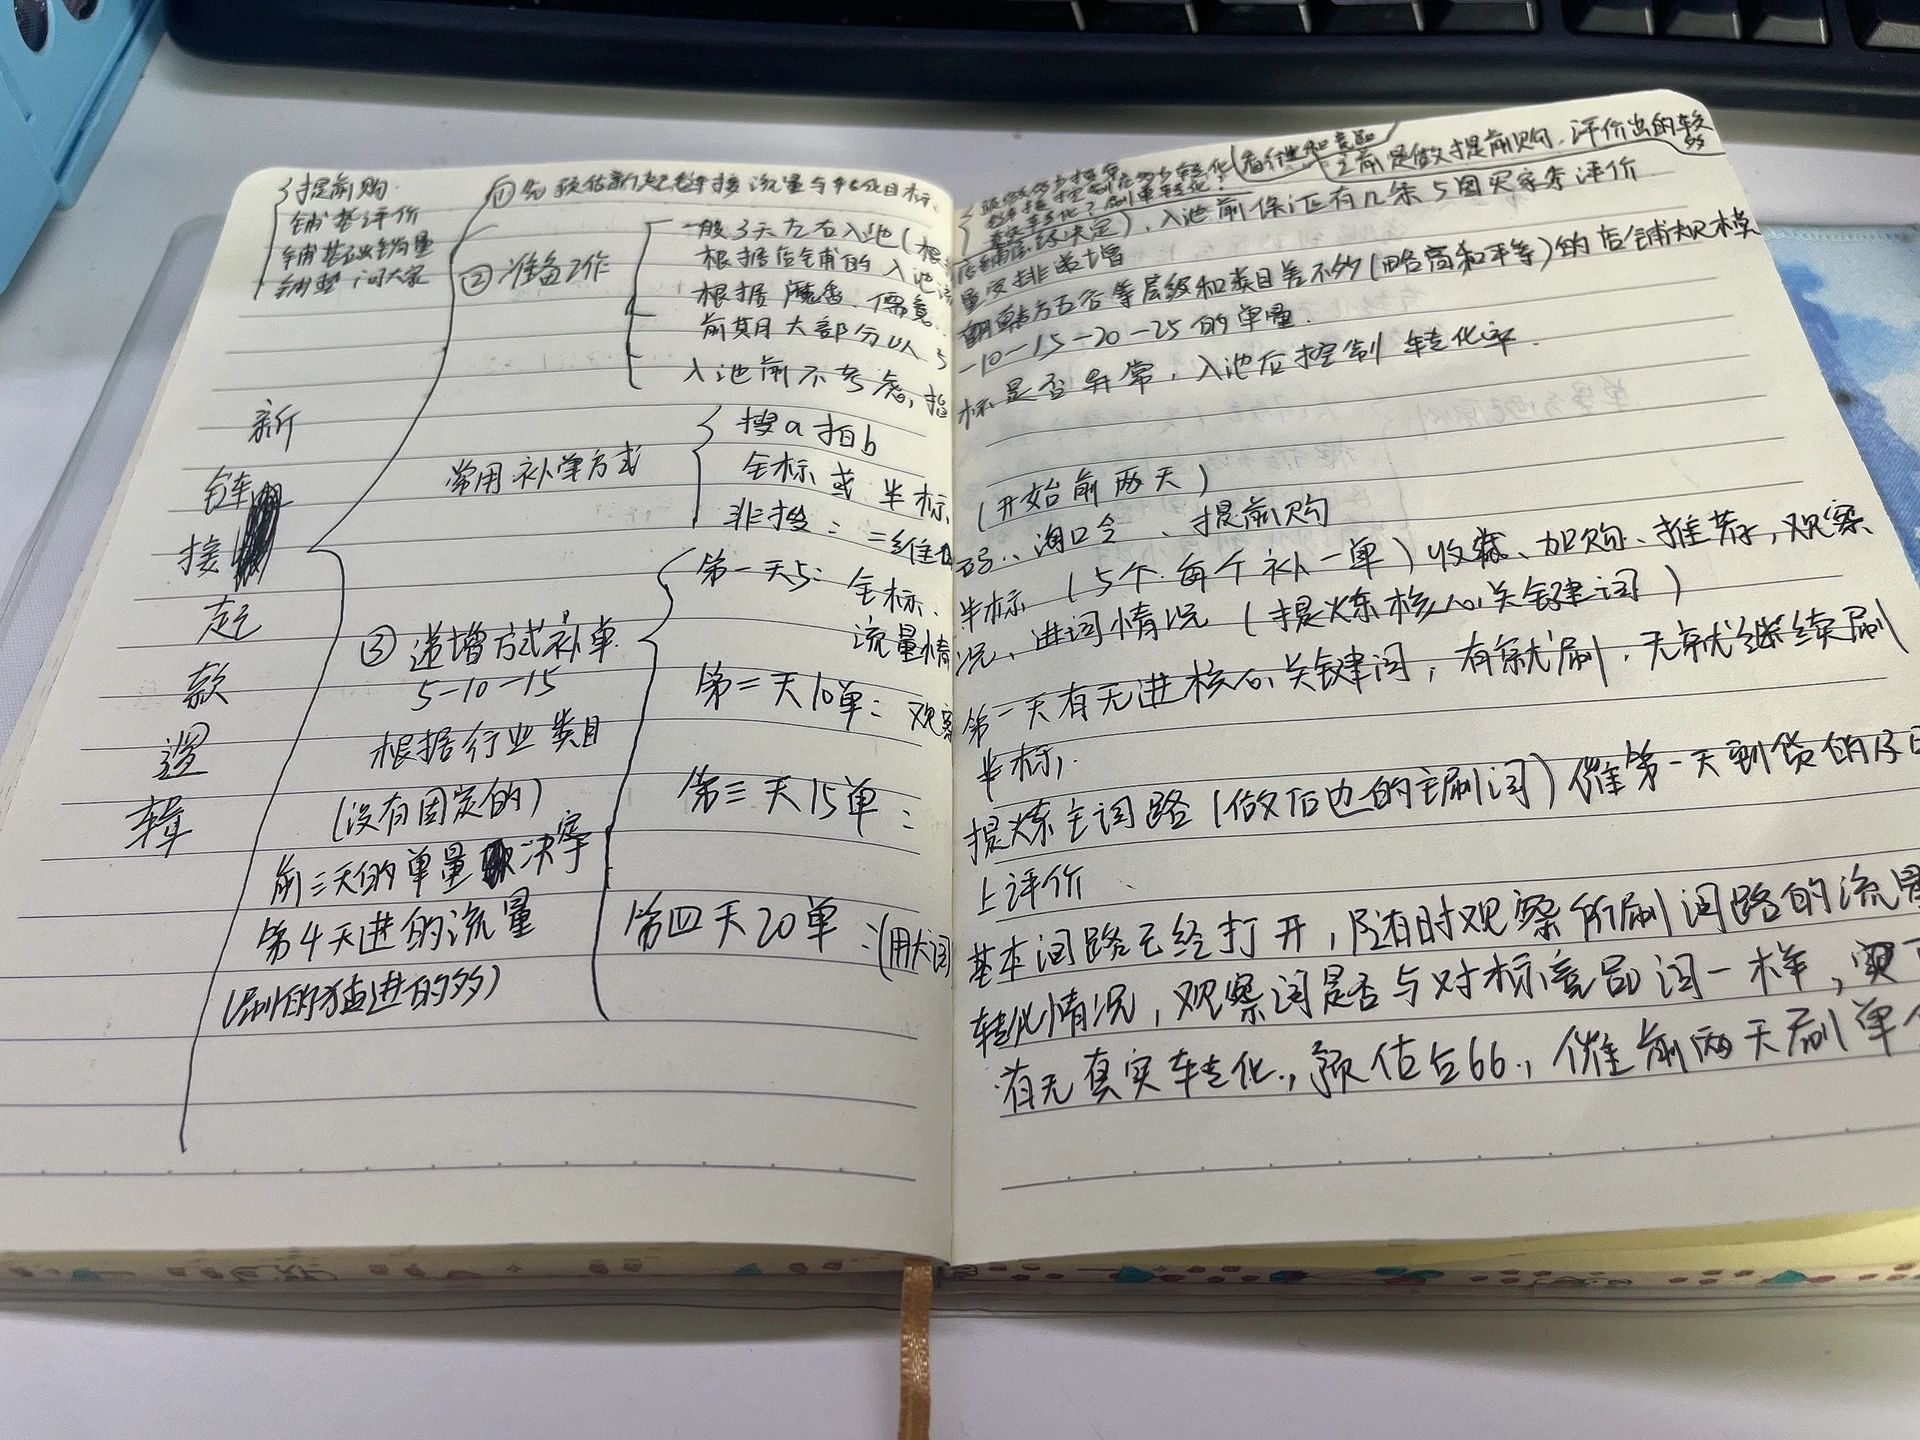 提前购
铺基评价
铺基础销量
铺垫 问大家
新
链
接
起
款
逻
辑
① 先预估新起链接流量与转化目标
② 准备工作
一般3天左右入池
根据店铺的入池流
根据
前期大部分以 5
入池前不考虑,指
常用补单方式
搜a拍b
全标或半标
非搜:二维
③ 递增方式补单
5-10-15
根据行业类目
(没有固定的)
前三天的单量决定
第4天进的流量
(刷的猛进的多)
第一天5:全标、
流量情
第二天10单:观察
第三天15单:
第四天20单:(用大词
之前是做提前购,评价出的较多
层级决定),入池前保证有几条5图买家秀评价
量级递增
等层级和类目差不多(略高和平等)的店铺规模
-10-15-20-25的单量
标是否异常,入池后控制转化率.
(开始前两天)
码..淘口令、提前购
半标(5个.每个补一单)收藏、加购、推荐,观察
况、进词情况(提炼核心关键词)
第一天有无进核心关键词,有就刷.无就继续刷
半标,
提炼主词路(做后边的主刷词)催第一天到货的好
上评价
基本词路已经打开,随时观察所刷词路的流量
转化情况,观察词是否与对标竞品词一样,
有无真实转化.,预估占66.,催前两天刷单